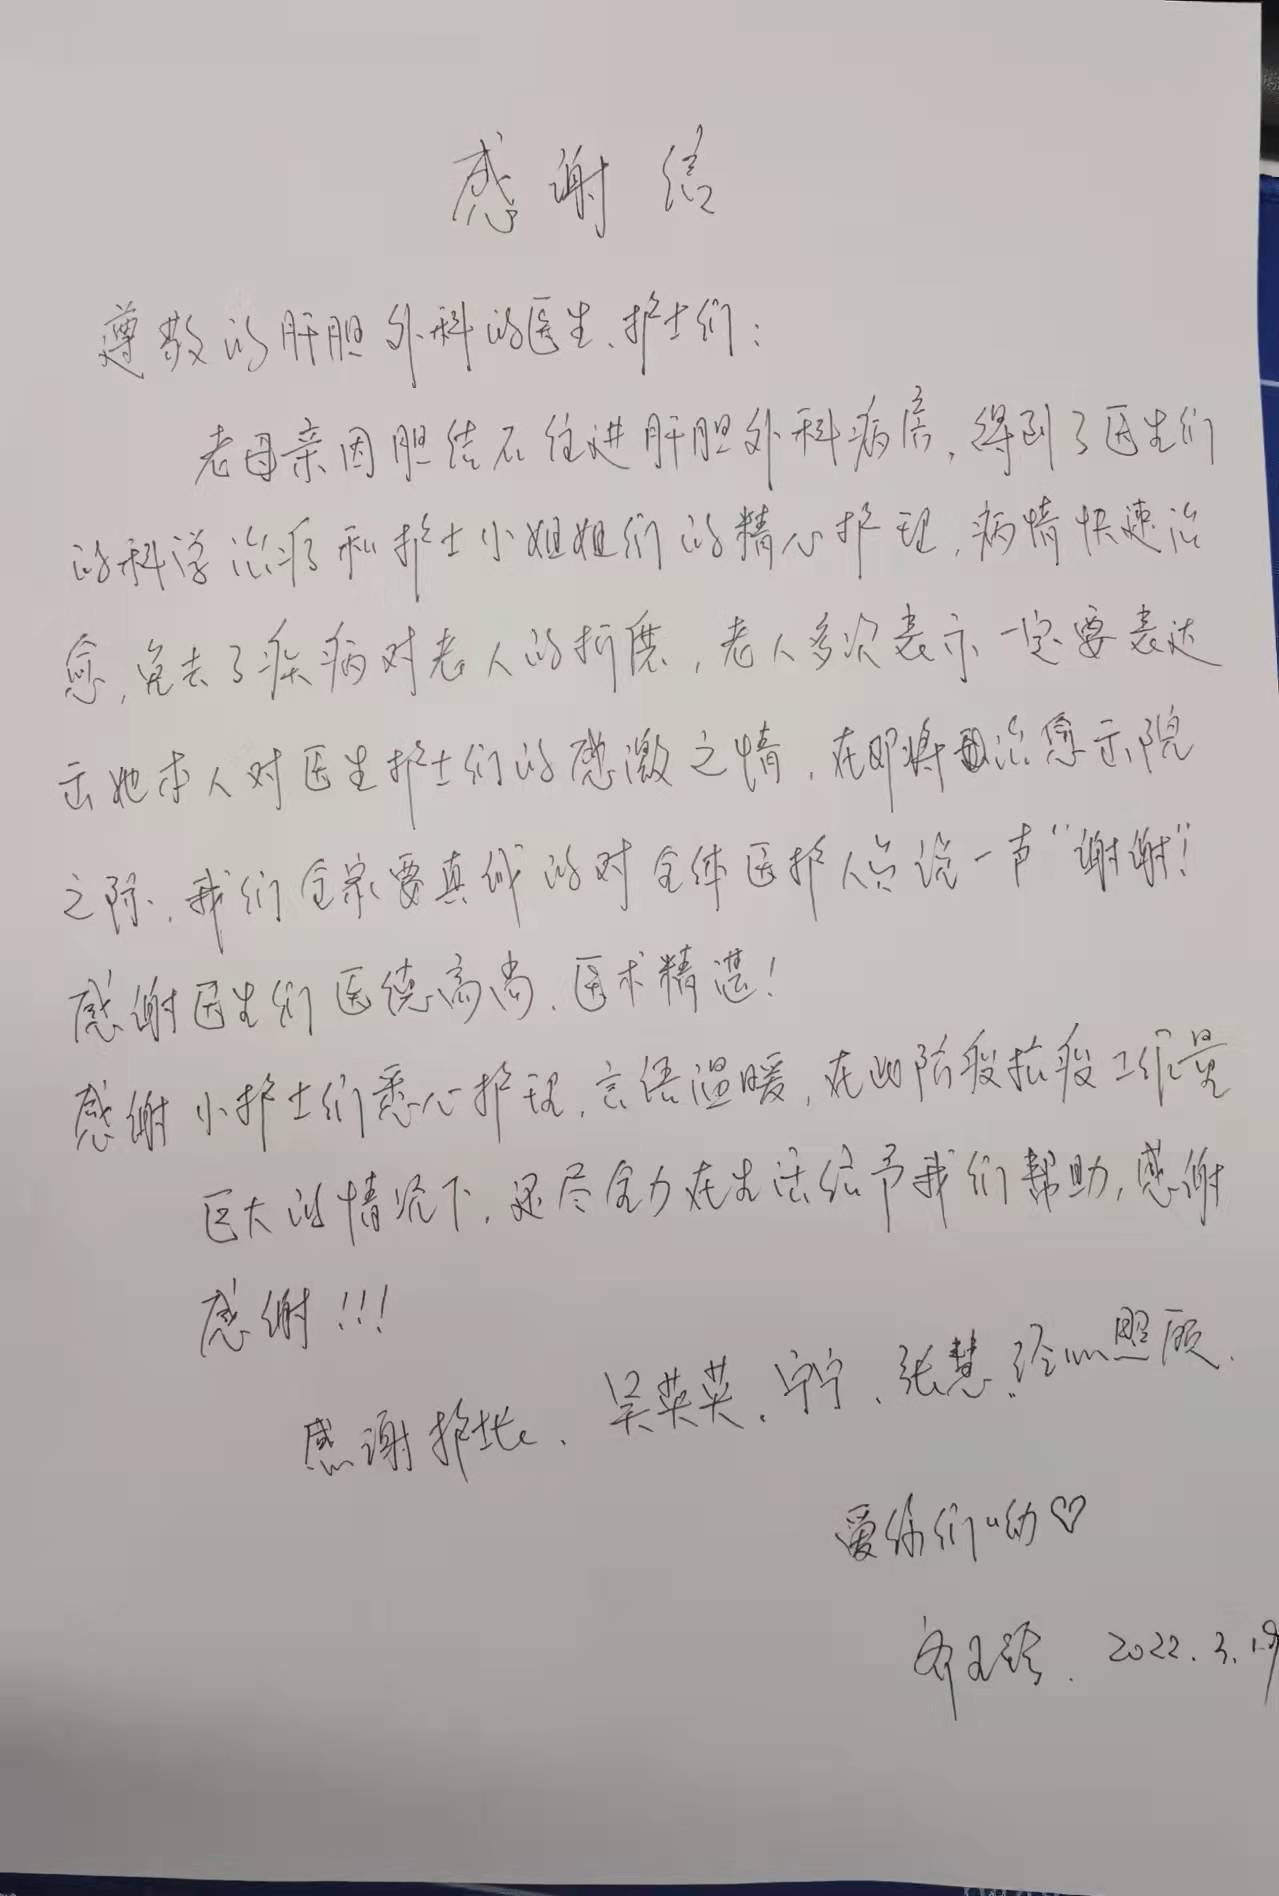 感谢信
尊敬的肝胆外科的医生、护士们：
老母亲因胆结石住进肝胆外科病房，得到了医生们
的科学治疗和护士小姐姐们的精心护理，病情快速治
愈，免去了疾病对老人的折磨，老人多次表示一定要表达
出她本人对医生护士们的感激之情，在即将治愈出院
之际，我们全家要真诚的对全体医护人员说一声“谢谢”！
感谢医生们医德高尚、医术精湛！
感谢小护士们悉心护理，言语温暖，在此阶段抗疫工作量
巨大的情况下，还尽全力在生活给予我们帮助，感谢
感谢！！！
感谢护士长、吴英英、宁宁、张慧，经心照顾．
爱你们呦♡
2022.3.19